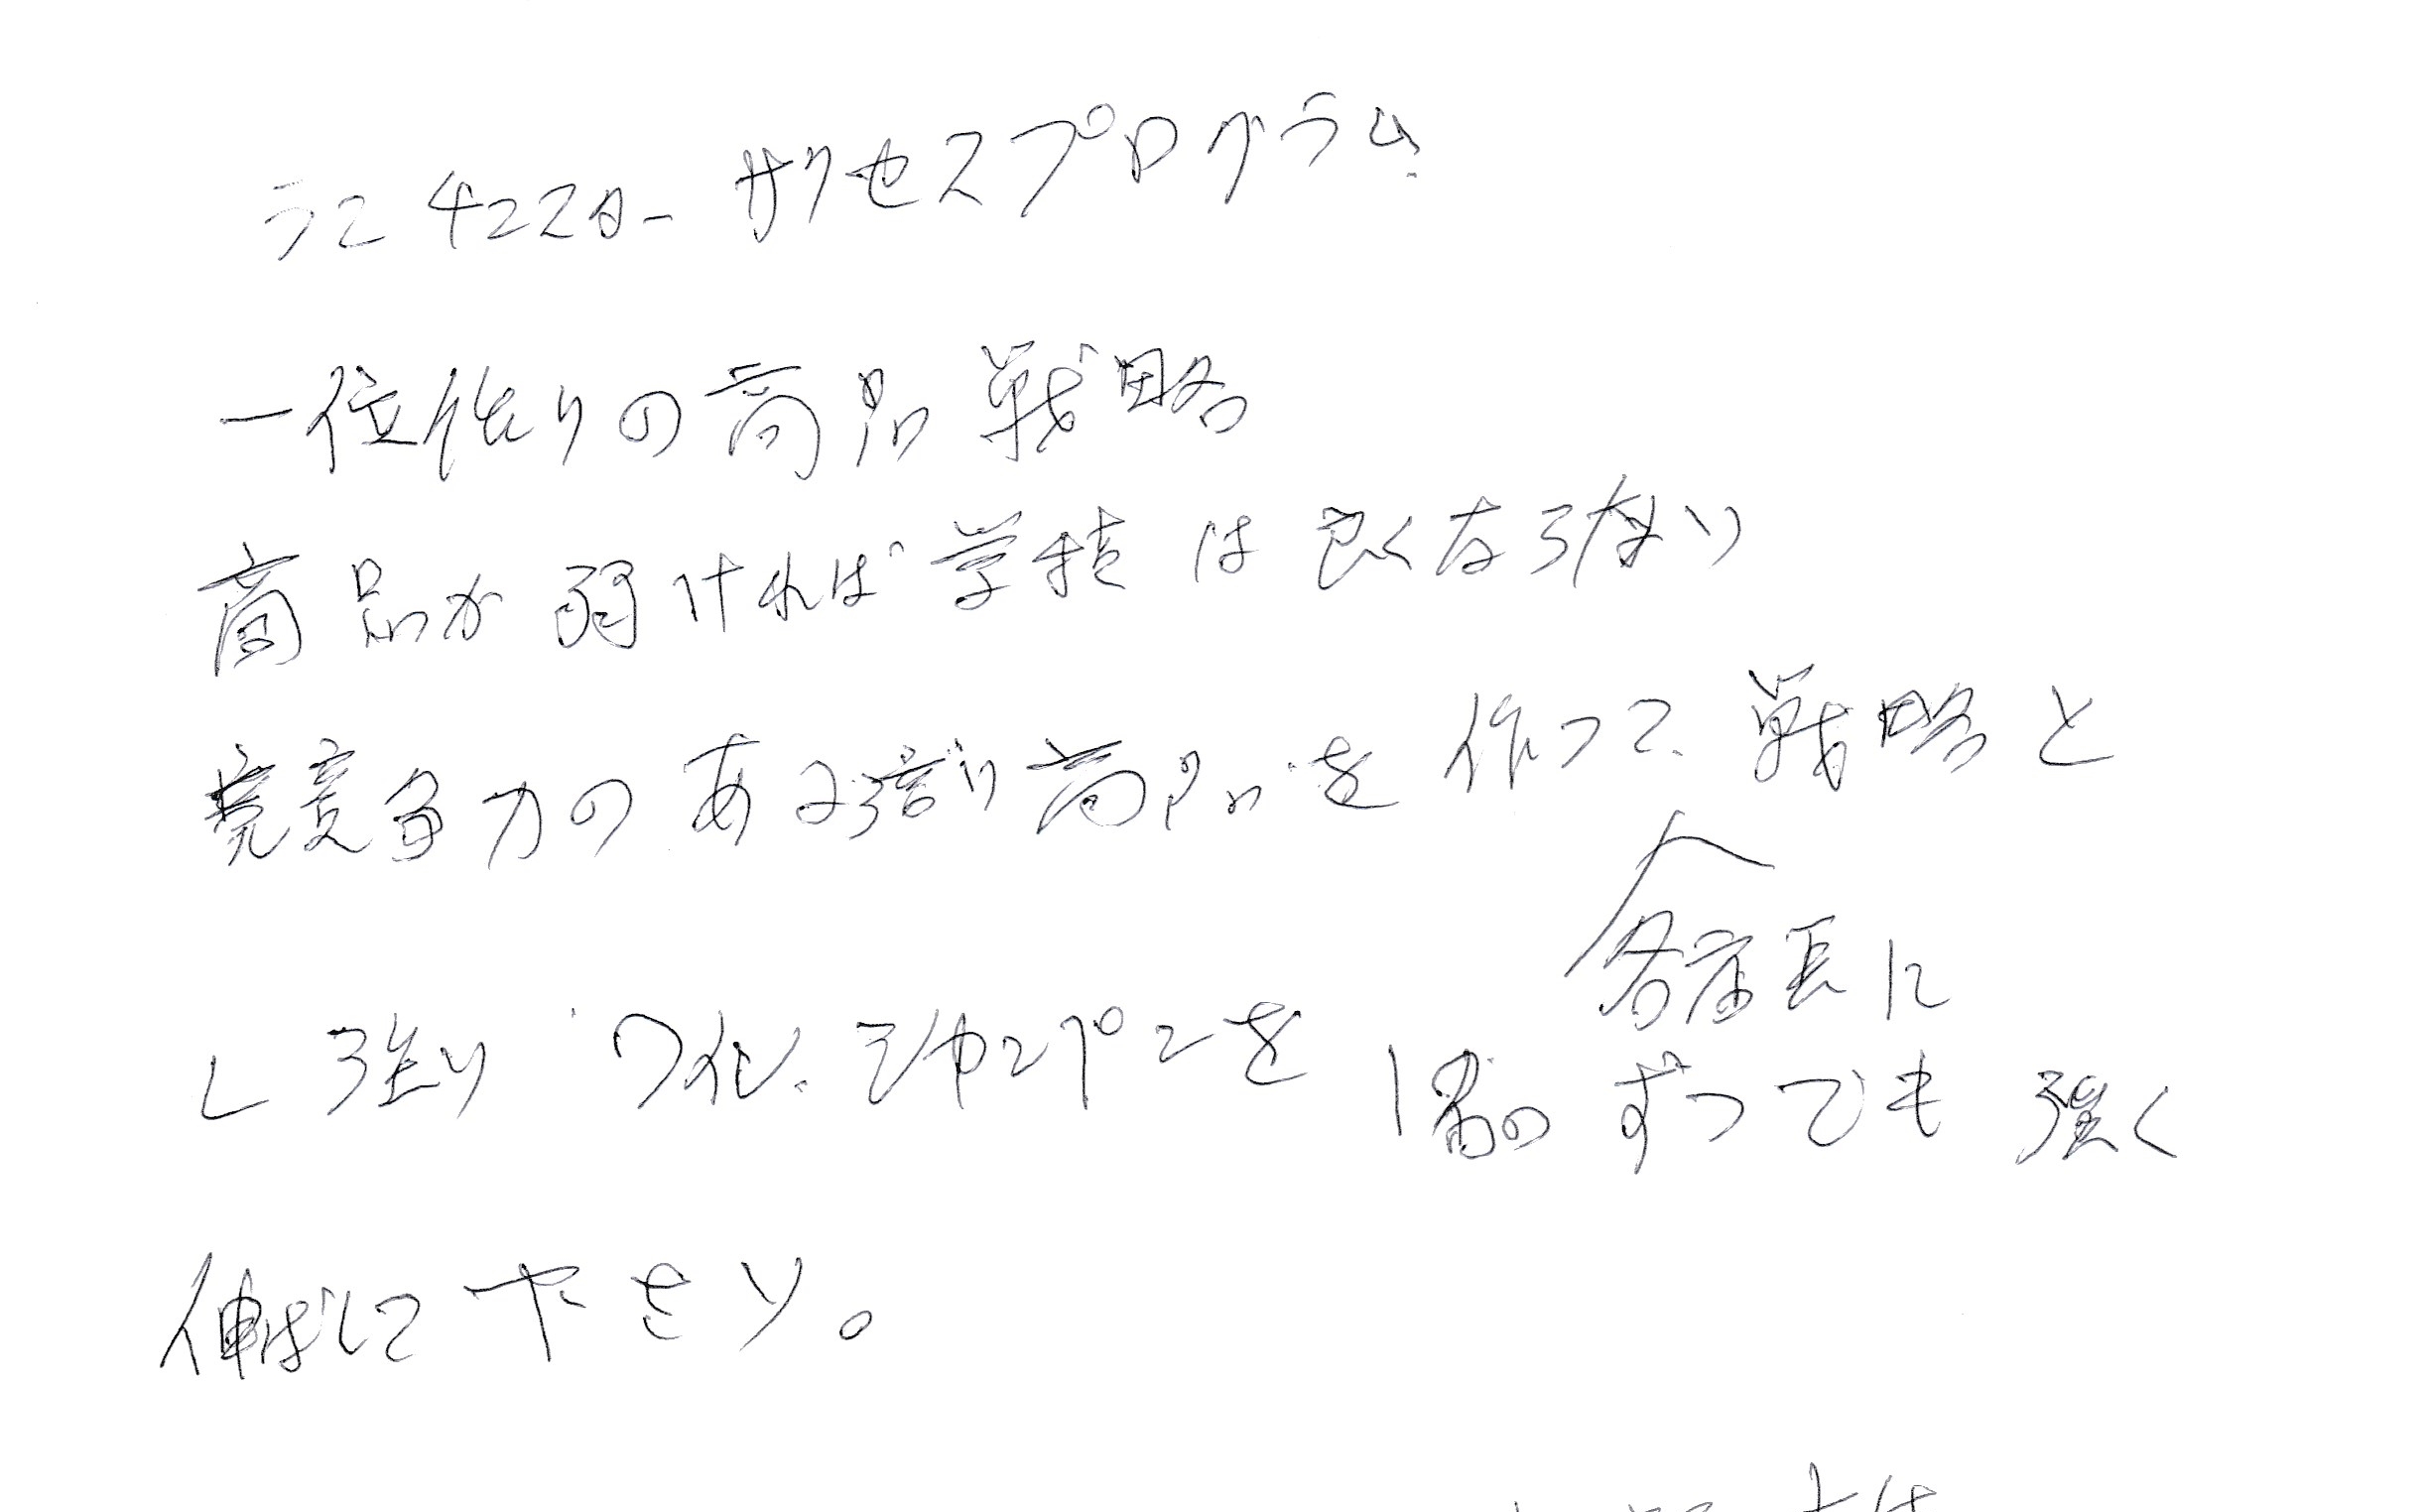 ランチェスター サクセスプログラム
一位作りの商品戦略
商品が弱ければ業績は良くならない
競争力のある強い商品を作って、戦略と
各店長に
し強いワイン、シャンパンを1品ずつでも強く
伸ばして下さい。